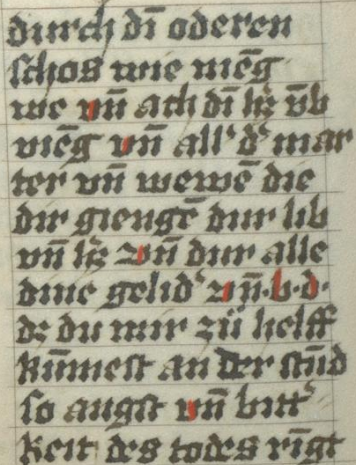 durch dī oderen
schos wie mēg
we vn̄ ach dī hꝛ̄ v̄b
mēg vn̄ all' d' mar
ter vn̄ wewē die
dir giengē dur lib
vn̄ hꝛ̄ vn̄ dur alle
dine gelid' vn̄·b·d·
dz du mir zū helff
kūnnest an der stūd
so angst vn̄ bitt'
keit des todes rīgt